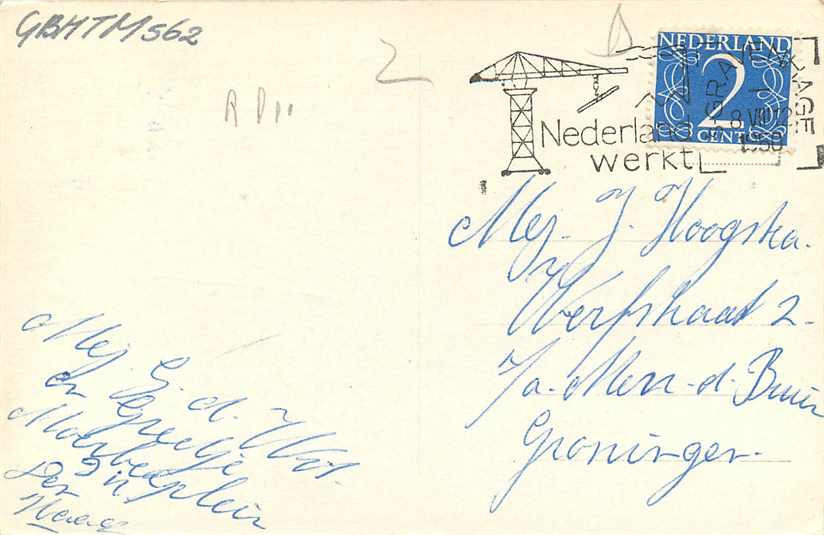 GBHTM562
NEDERLAND
2
CENT
'S GRAVENHAGE
8 VIII 12
1950
Nederland
werkt
Mej. J. Hoogstra.
Werfstraat 2.
p/a. Mevr. d. Buur
Groningen.
Mej. G. d. Wit.
en Greetje
in
Den
Haag